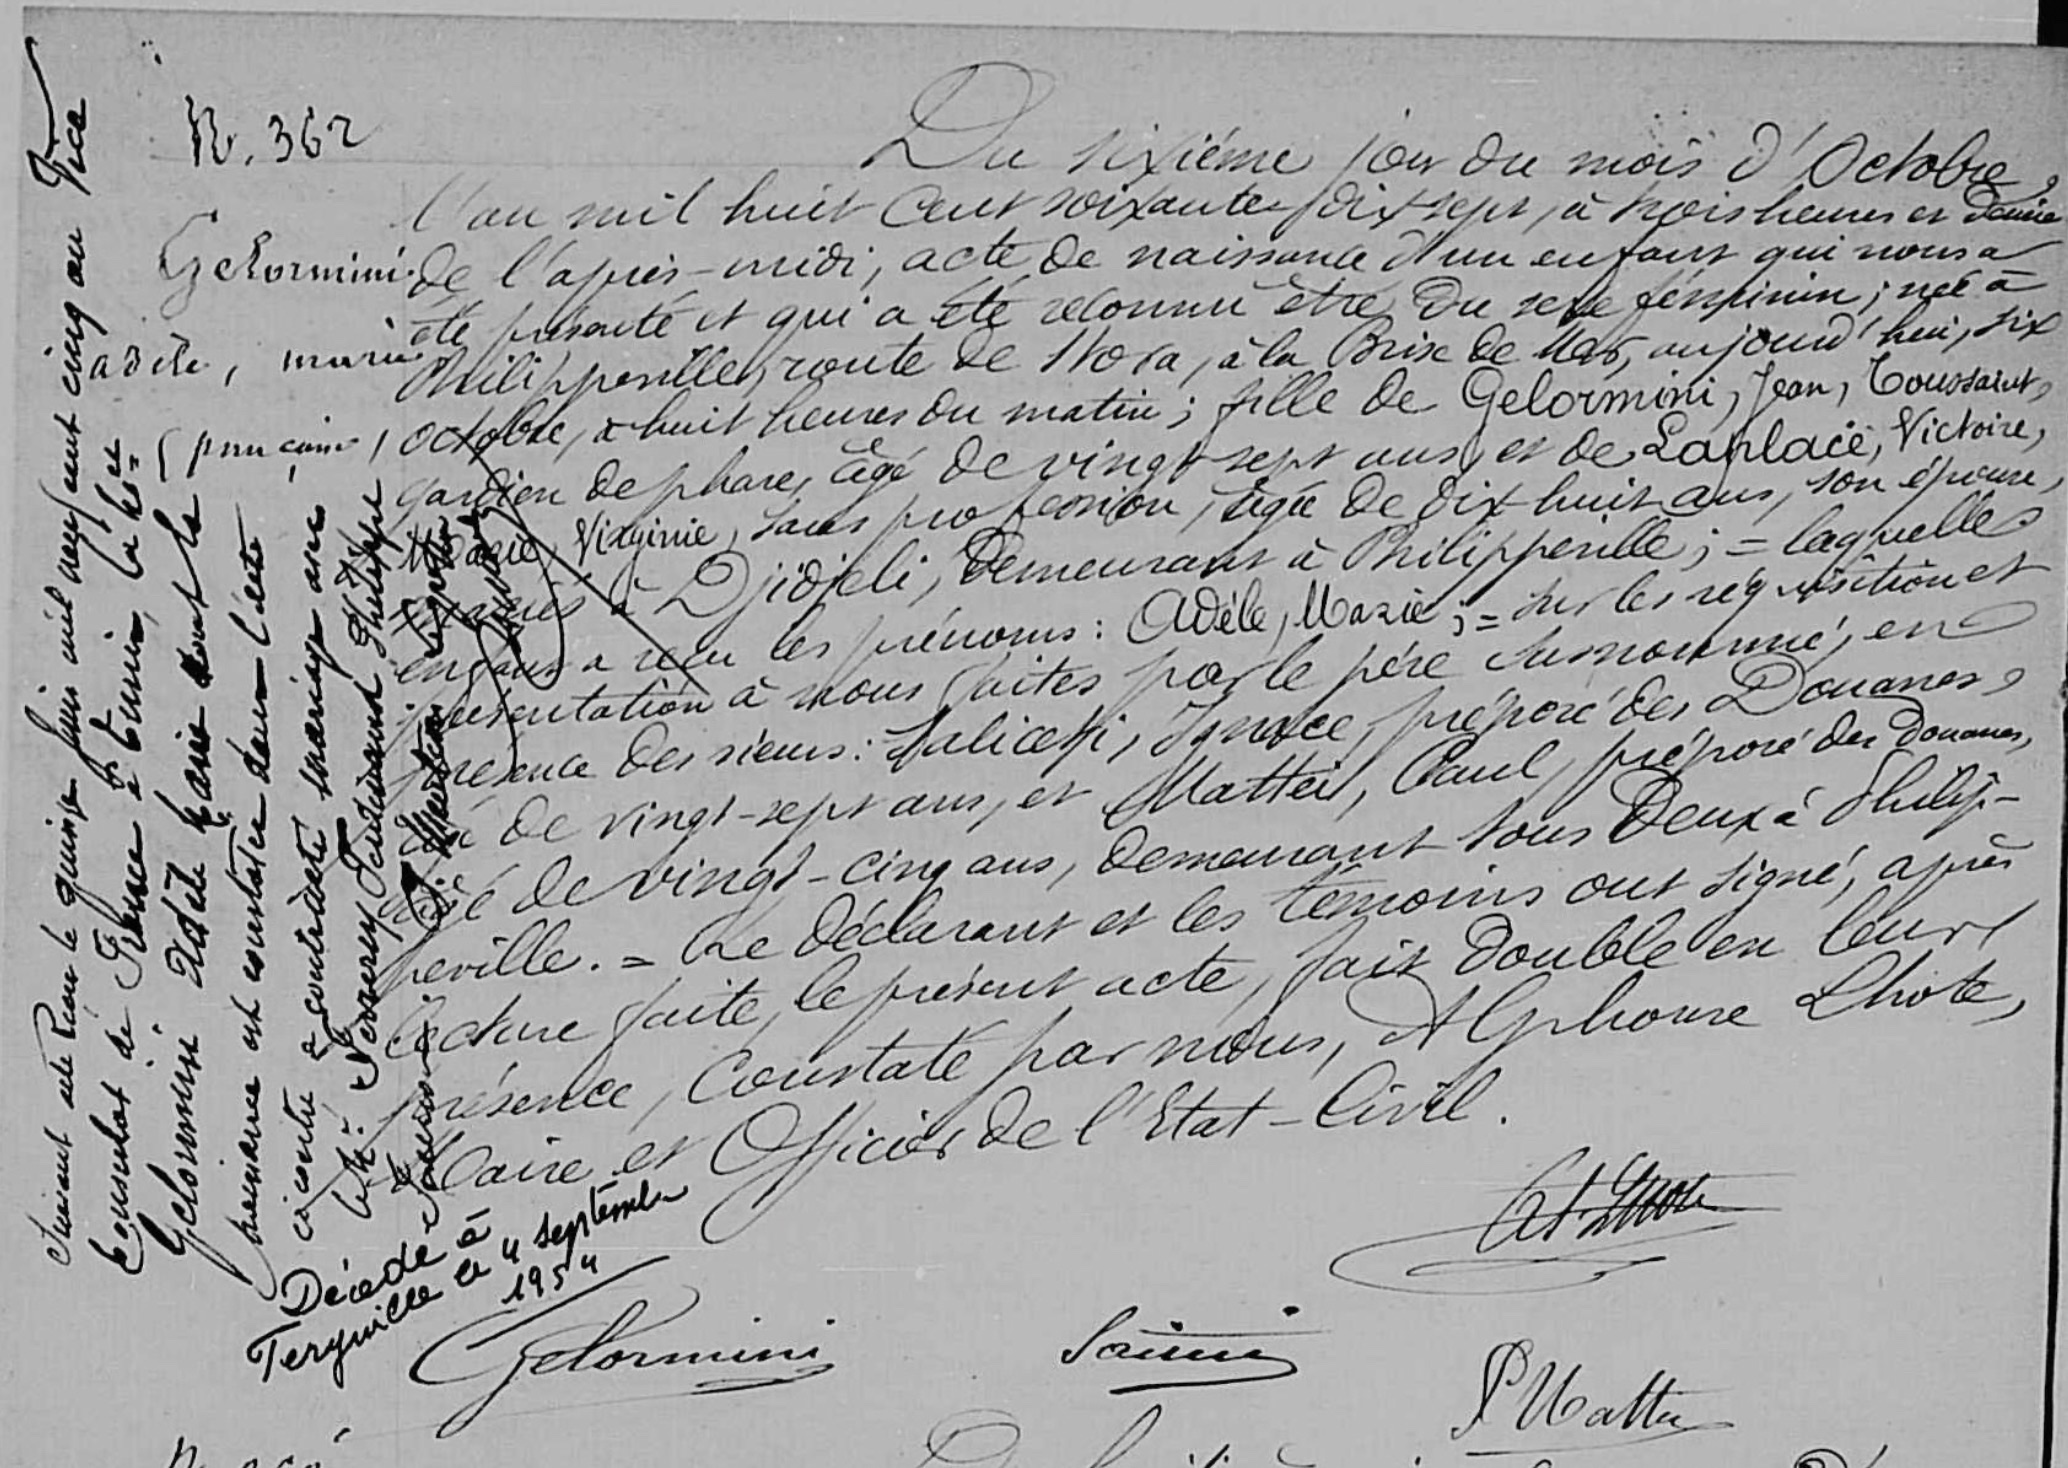 N. 362
Gelormini
adèle, marie
(française)
Du sixième jour du mois d'Octobre,
l'an mil huit cent soixante dix sept, à trois heures et demie
de l'après-midi, acte de naissance d'un enfant qui nous a
été présenté et qui a été reconnu être du sexe féminin; née à
Philippeville, route de Stora, à la Brise de Mer, aujourd'hui, six
octobre, à huit heures du matin; fille de Gelormini, Jean, Toussaint,
gardien de phare, âgé de vingt-sept ans, et de Laplace, Victoire,
Marie, Virginie, sans profession, âgée de dix-huit ans, son épouse,
mariés à Djidjeli, demeurant à Philippeville; = laquelle
enfant a reçu les prénoms: Adèle, Marie; = sur les réquisition et
présentation à nous faites par le père susnommé, en
présence des sieurs: Saliceti, Ignace, préposé des Douanes,
âgé de vingt-sept ans, et Mattei, Paul, préposé des Douanes,
âgé de vingt-cinq ans, demeurant tous deux à Philip-
peville. = Le déclarant et les témoins ont signé, après
lecture faite, le présent acte, fait double en leur
présence, constaté par nous, Alphonse Lhote,
Maire et Officier de l'Etat-Civil.
Suivant acte Reçu le quinze Juin mil neuf cent cinq au Vice
Consulat de France à
Gelormini Adèle Marie dont la
naissance est constatée dans l'acte
ci contre a contracté mariage avec
Ferdinand Philippe
Décédé à
le 4 septembre
1954
Gelormini
P Mattei